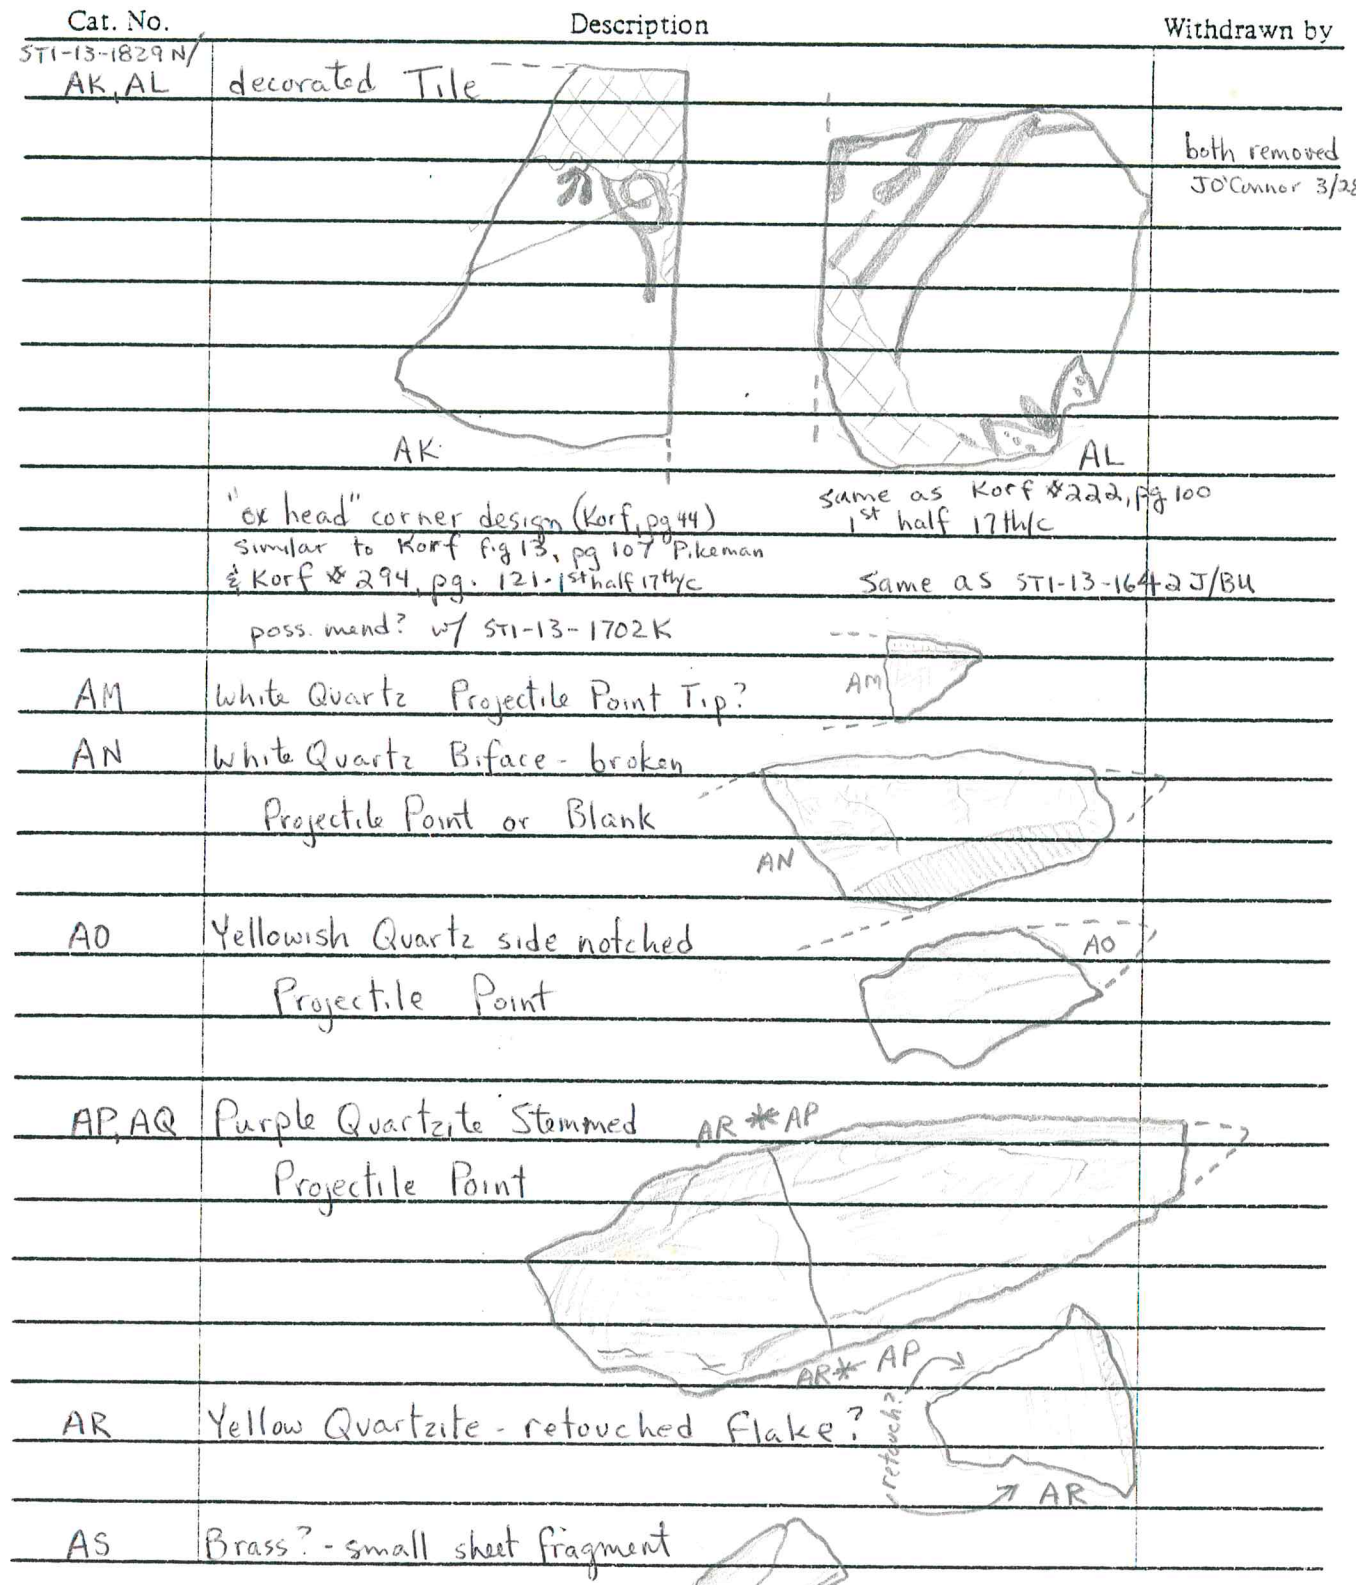 Cat. No. Description Withdrawn by
ST1-13-1829N/
AK, AL decorated Tile
both removed
JO'Connor 3/28
AK AL
"ox head" corner design (Korf, pg 44)
similar to Korf fig 13, pg 107 Pikeman
& Korf # 294, pg. 121-1st half 17th/c
poss. mend? w/ ST1-13-1702K
same as Korf #222, pg 100
1st half 17th/c
same as ST1-13-1642J/BU
AM White Quartz Projectile Point Tip?
AM
AN White Quartz Biface - broken
Projectile Point or Blank
AN
AO Yellowish Quartz side notched
AO
Projectile Point
AP, AQ Purple Quartzite Stemmed
AR * AP
Projectile Point
AR * AP
retouch?
AR Yellow Quartzite - retouched flake?
AR
AS Brass? - small sheet fragment